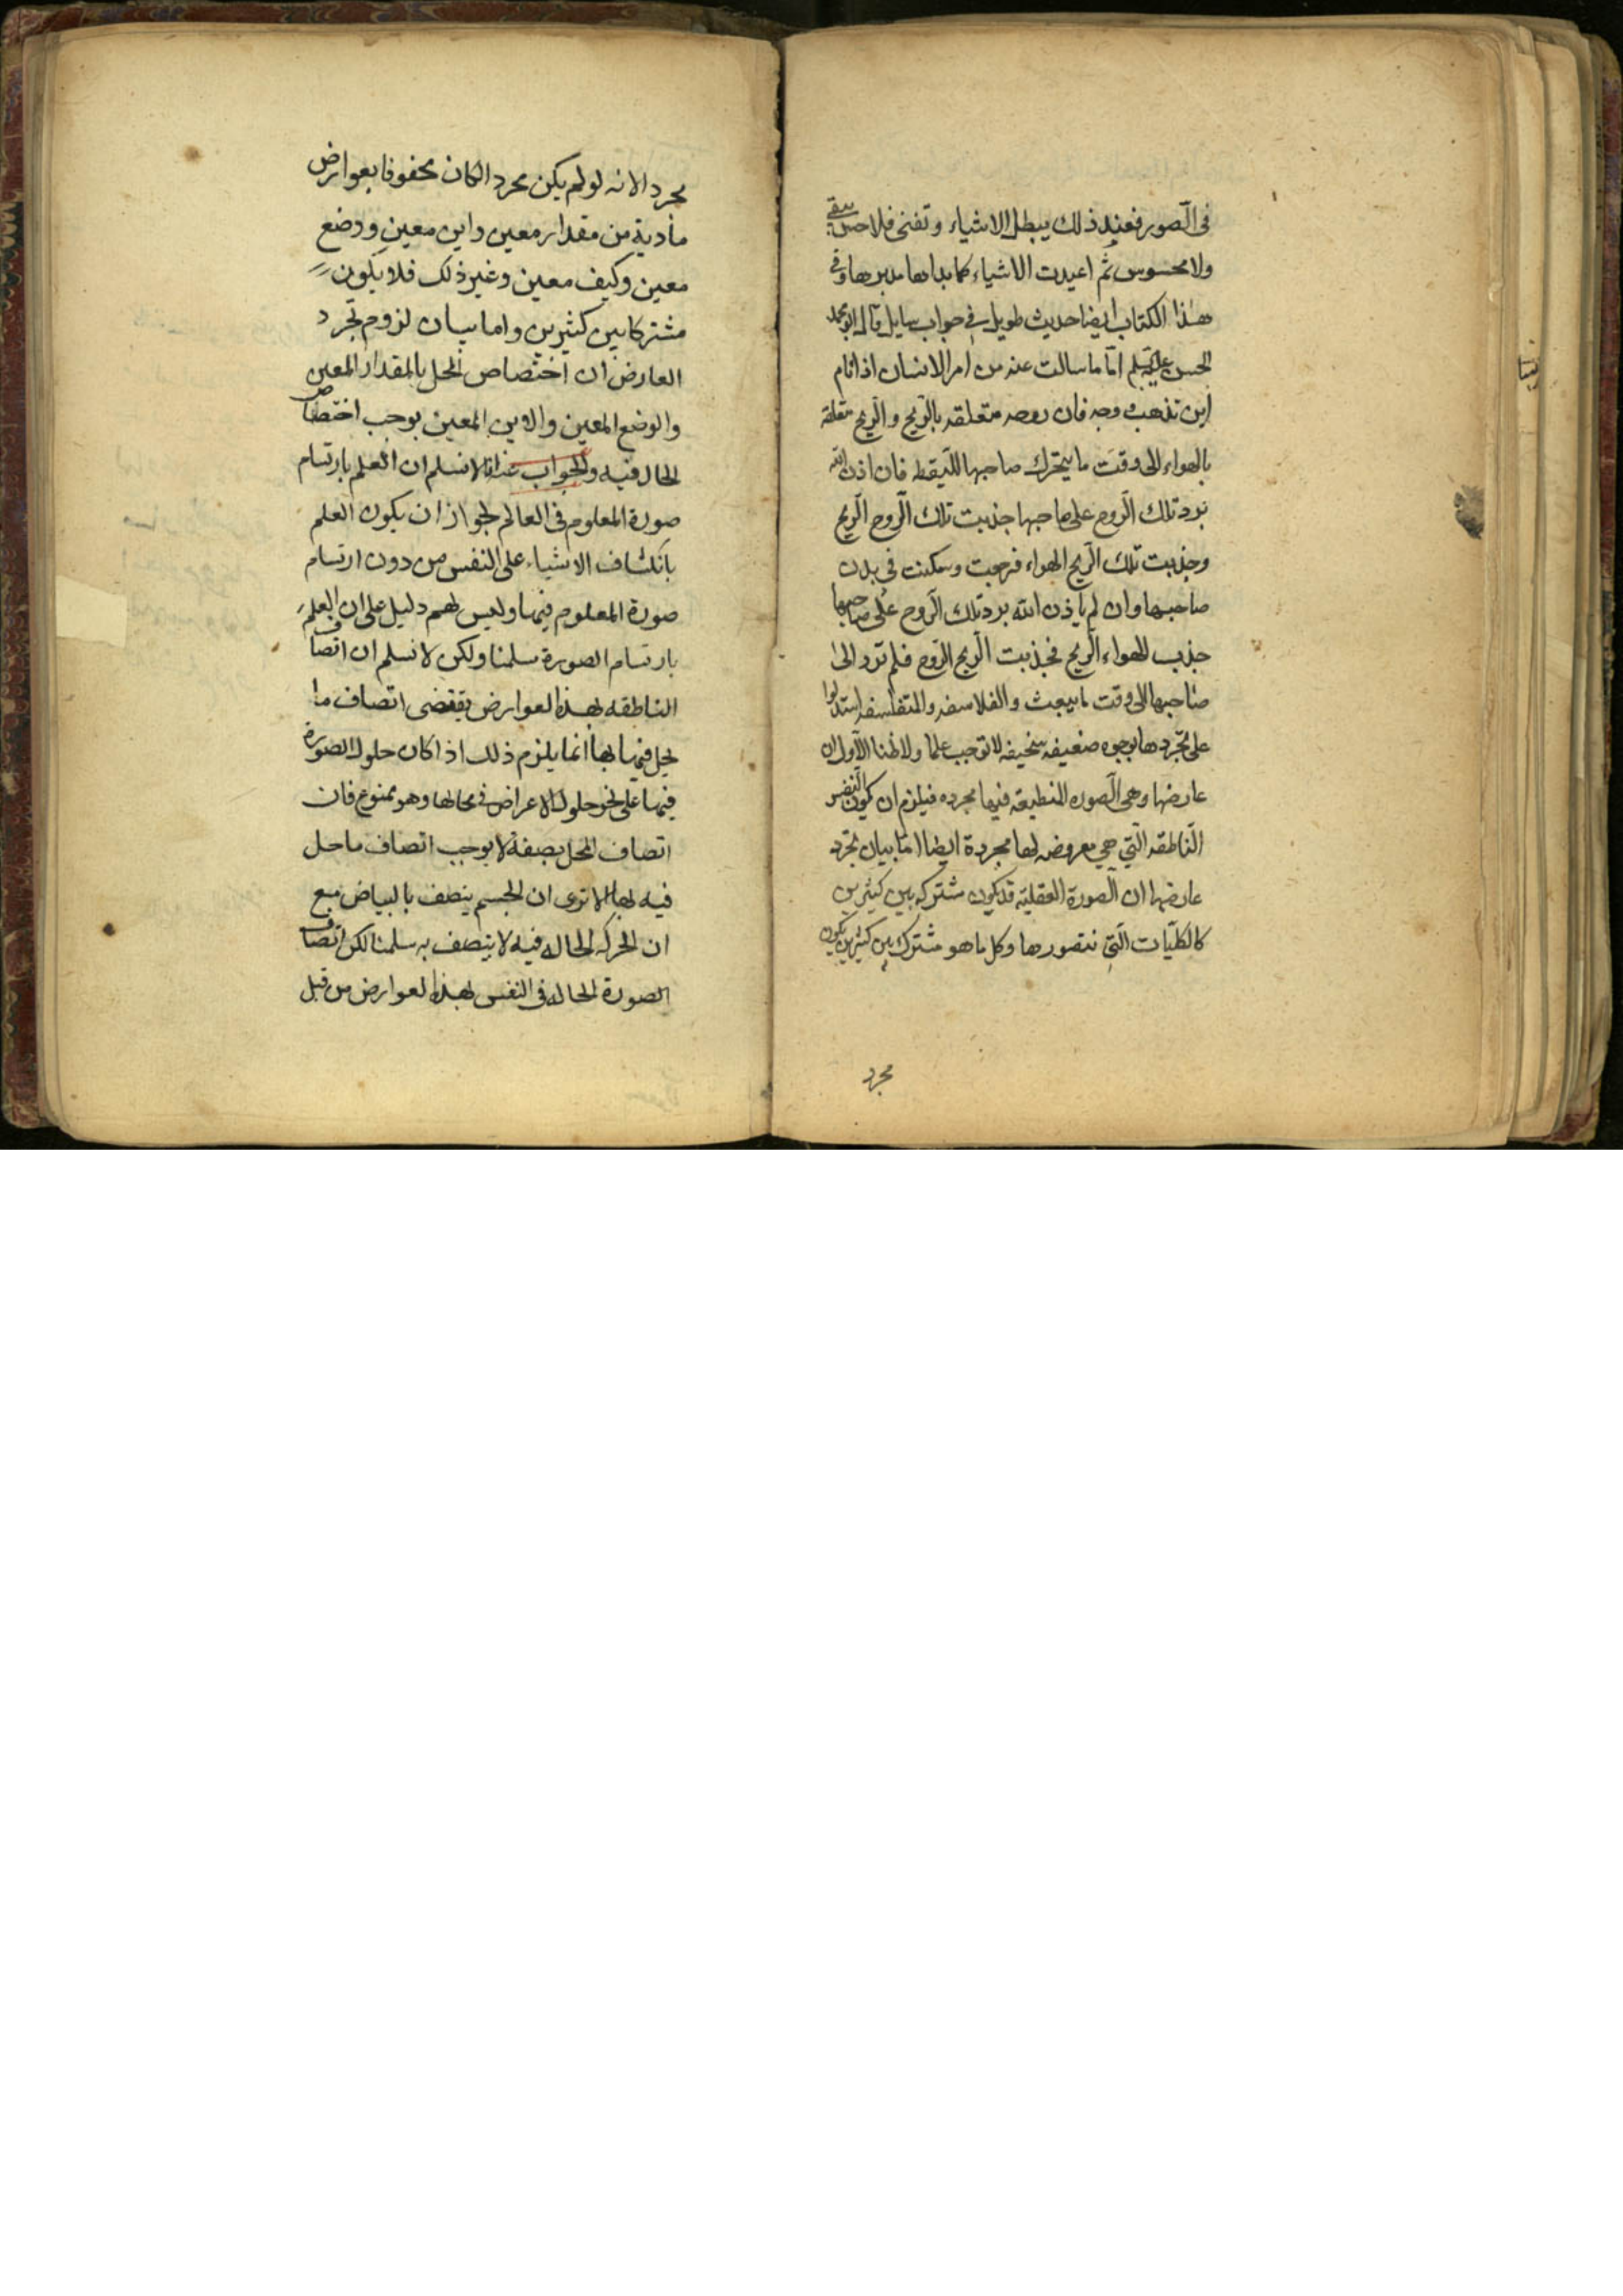 فى الصور فعند ذلك يبطل الاشياء وتفنى فلا حس يبقى
ولا محسوس ثم اعيدت الاشياء كما بداها مدبرها وفى
هذا الكتاب ايضا حديث طويل فى جواب سايل قال ابو محمد
الحسن اما ما سالت عنه من امر الانسان اذا نام
اين تذهب روحه فان روحه متعلقه بالريح والريح متعلقه
بالهواء الى وقت ما يتحرك صاحبها لليقظه فان اذن الله
برد تلك الروح على صاحبها جذبت تلك الروح الريح
وجذبت تلك الريح الهواء فرجعت وسكنت فى بدن
صاحبها وان لم ياذن الله برد تلك الروح على صاحبها
جذب الهواء الريح فجذبت الريح الروح فلم ترد الى
صاحبها الى وقت ما يبعث والفلاسفه والمتفلسفه استدلوا
على تجردها بوجوه ضعيفه سخيفه لا توجب علما ولا ظنا الاول ان
عارضها وهى الصوره المنطبعه فيها مجرده فيلزم ان يكون النفس
الناطقه التى هى معروضه لها مجردة ايضا اما بيان تجرد
عارضها ان الصورة العقلية قد يكون مشتركه بين كثيرين
كالكليات التى نتصورها وكل ما هو مشترك بين كثيرين يكون
مجرد
مجردا لانه لو لم يكن مجردا لكان محفوفا بعوارض
مادية من مقدار معين واين معين ووضع
معين وكيف معين وغير ذلك فلا يكون
مشتركا بين كثيرين واما بيان لزوم تجرد
العارض ان اختصاص المحل بالمقدار المعين
والوضع المعين والاين المعين يوجب اختصاص
الحال فيه والجواب عنه انا لا نسلم ان العلم بارتسام
صورة المعلوم فى العالم لجواز ان يكون العلم
بانكشاف الاشياء على النفس من دون ارتسام
صورة المعلوم فيها وليس لهم دليل على ان العلم
بارتسام الصورة سلمنا ولكن لا نسلم ان اتصاف
الناطقه بهذه العوارض يقتضى اتصاف ما
يحل فيها بها انما يلزم ذلك اذا كان حلول الصورة
فيها على نحو حلول الاعراض فى محالها وهو ممنوع فان
اتصاف المحل بصفة لا يوجب اتصاف ما حل
فيه بها الا ترى ان الجسم يتصف بالبياض مع
ان الحركه الحاله فيه لا يتصف به سلمنا لكن اتصاف
الصورة الحاله فى النفس بهذه العوارض من قبل